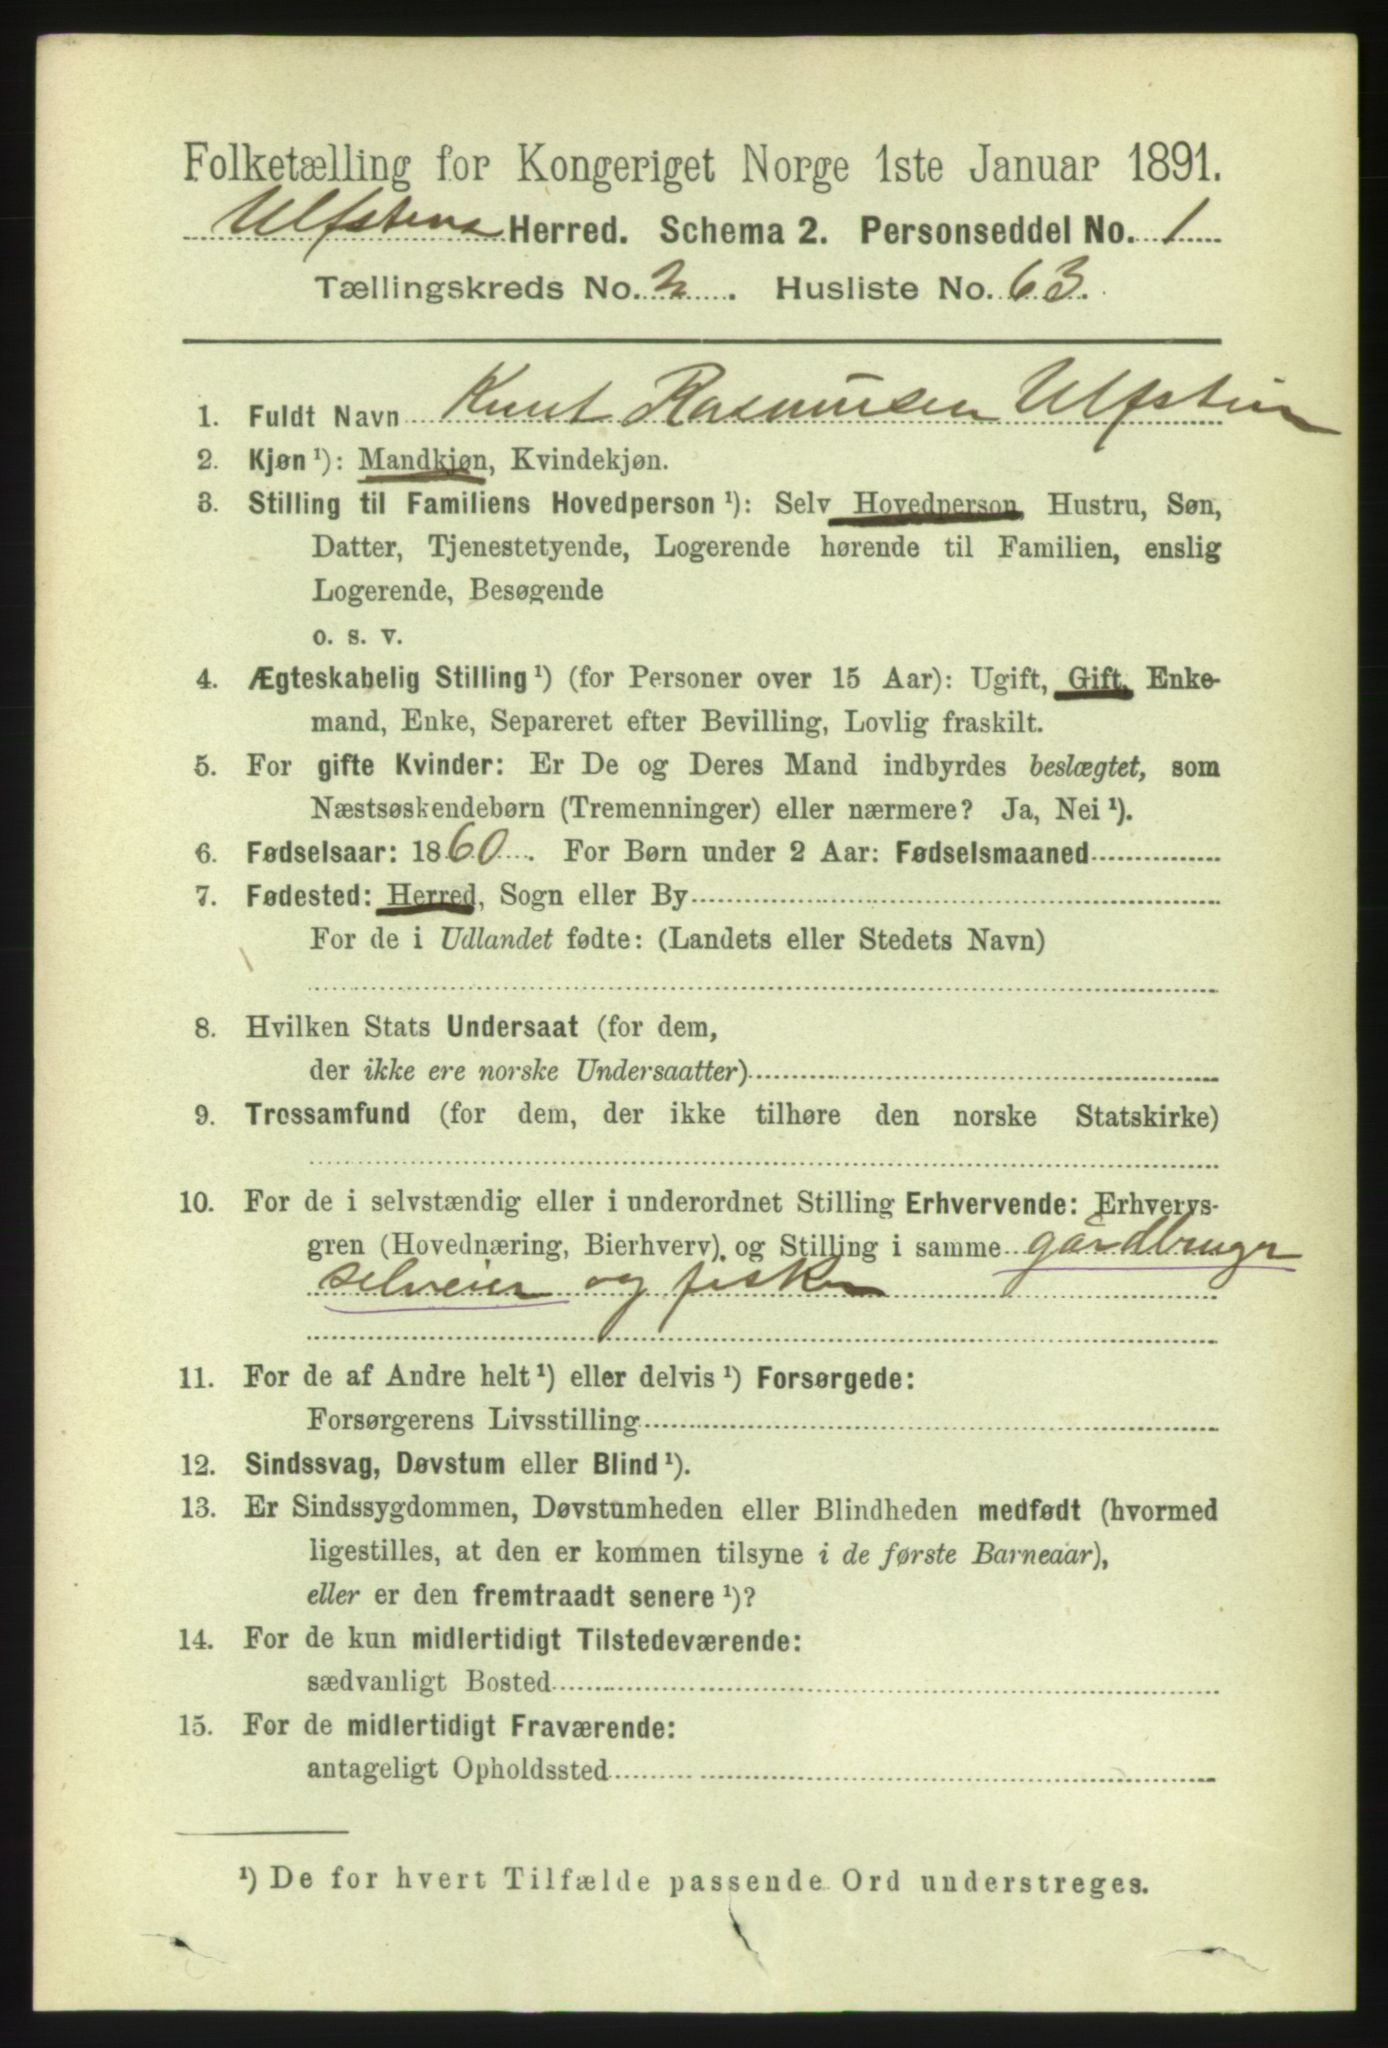 Folketælling for Kongeriget Norge 1ste Januar 1891.
Ulfstens Herred. Schema 2. Personseddel No. 1
Tællingskreds No. 2. Husliste No. 63.
1. Fuldt Navn Knut Rasmusen Ulfstein
2. Kjøn¹): Mandkjøn, Kvindekjøn.
3. Stilling til Familiens Hovedperson¹): Selv Hovedperson, Hustru, Søn,
Datter, Tjenestetyende, Logerende hørende til Familien, enslig
Logerende, Besøgende
o. s. v.
4. Ægteskabelig Stilling¹) (for Personer over 15 Aar): Ugift, Gift, Enke-
mand, Enke, Separeret efter Bevilling, Lovlig fraskilt.
5. For gifte Kvinder: Er De og Deres Mand indbyrdes beslægtet, som
Næstsøskendebørn (Tremenninger) eller nærmere? Ja, Nei¹).
6. Fødselsaar: 1860. For Børn under 2 Aar: Fødselsmaaned
7. Fødested: Herred, Sogn eller By
For de i Udlandet fødte: (Landets eller Stedets Navn)
8. Hvilken Stats Undersaat (for dem,
der ikke ere norske Undersaatter)
9. Trossamfund (for dem, der ikke tilhøre den norske Statskirke)
10. For de i selvstændig eller i underordnet Stilling Erhvervende: Erhvervs-
gren (Hovednæring, Bierhverv) og Stilling i samme gårdbruger
selveier og fisker
11. For de af Andre helt¹) eller delvis¹) Forsørgede:
Forsørgerens Livsstilling
12. Sindssvag, Døvstum eller Blind¹).
13. Er Sindssygdommen, Døvstumheden eller Blindheden medfødt (hvormed
ligestilles, at den er kommen tilsyne i de første Barneaar),
eller er den fremtraadt senere¹)?
14. For de kun midlertidigt Tilstedeværende:
sædvanligt Bosted
15. For de midlertidigt Fraværende:
antageligt Opholdssted
¹) De for hvert Tilfælde passende Ord understreges.